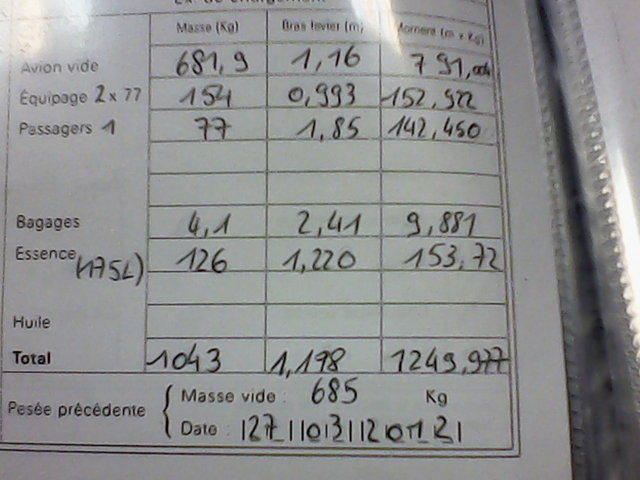 Ex. de chargement
Masse (Kg) Bras levier (m) Moment (m x Kg)
Avion vide 681,9 1,16 791,004
Équipage 2 x 77 154 0,993 152,922
Passagers 1 77 1,85 142,450
Bagages 4,1 2,41 9,881
Essence (175L) 126 1,220 153,72
Huile
Total 1043 1,198 1249,977
Pesée précédente Masse vide : 685 Kg
Date : |27||03||2012|